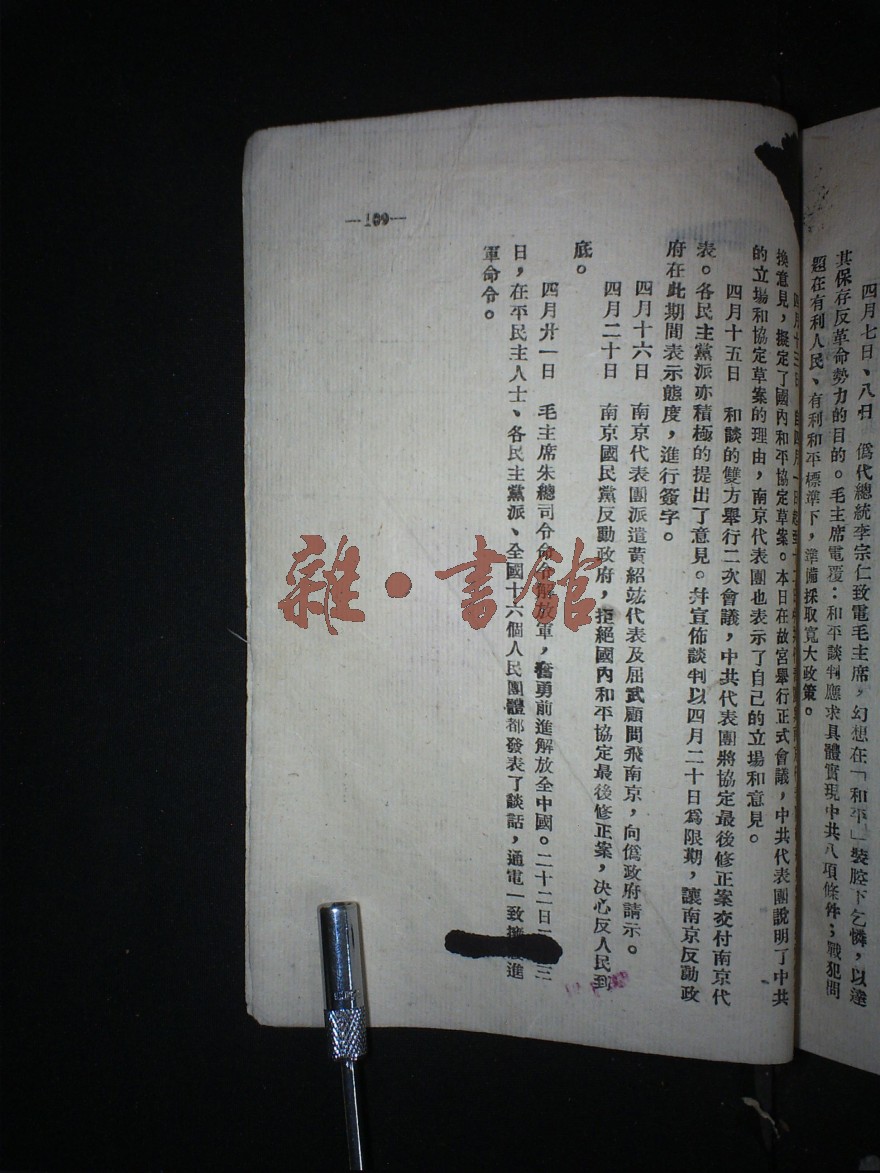 四月七日、八日　僞代總統李宗仁致電毛主席，幻想在「和平」裝腔下乞憐，以達
其保存反革命勢力的目的。毛主席電覆：和平談判應求具體實現中共八項條件；戰犯問
題在有利人民、有利和平標準下，準備採取寬大政策。
四月十三日　自四月一日
換意見，擬定了國內和平協定草案。本日在故宮舉行正式會議，中共代表團說明了中共
的立場和協定草案的理由，南京代表團也表示了自己的立場和意見。
四月十五日　和談的雙方舉行二次會議，中共代表團將協定最後修正案交付南京代
表。各民主黨派亦積極的提出了意見。幷宣佈談判以四月二十日爲限期，讓南京反動政
府在此期間表示態度，進行簽字。
四月十六日　南京代表團派遣黃紹竑代表及屈武顧問飛南京，向僞政府請示。
四月二十日　南京國民黨反動政府，拒絕國內和平協定最後修正案，決心反人民到
底。
四月廿一日　毛主席朱總司令命令解放軍，奮勇前進解放全中國。二十二日二三
日，在平民主人士、各民主黨派、全國十六個人民團體都發表了談話，通電一致擁進
軍命令。
—109—
雜·書館